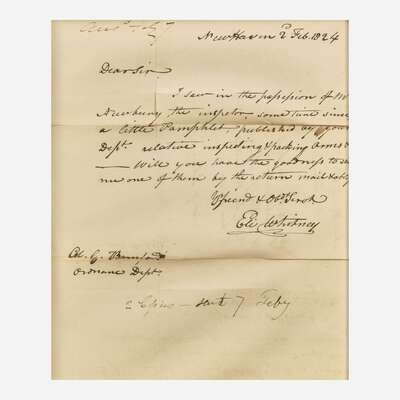 Ansd Feby 7
New Haven 2d Feb. 1824
Dear Sir
I saw in the possession of Mr
Newbury the inspetor some time since
a little Pamphlet, published by your
Dept. relative inspecting & packing Arms &
— Will you have the goodness to
me one of them by the return mail & oblg
friend & Obt. Servt
Eli Whitney
Col. G. Bomford
Ordnance Dept.
2 Copies — sent 7 Feby